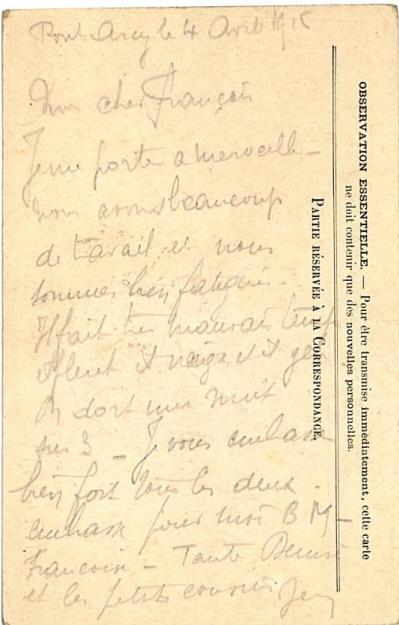 Pont Arcy le 4 Avril 1915
Mon cher François
Je me porte a merveille -
nous avons beaucoup
de travail et nous
sommes bien fatigués.
Il fait très mauvais temps
il pleut il neige et il gèle
On dort une nuit
sur 3 - Je vous embrasse
bien fort tous les deux.
embrasse pour moi B M -
Francoise - Tante
et les petits cousins Jean
PARTIE RÉSERVÉE À LA CORRESPONDANCE.
OBSERVATION ESSENTIELLE. — Pour être transmise immédiatement, cette carte
ne doit contenir que des nouvelles personnelles.